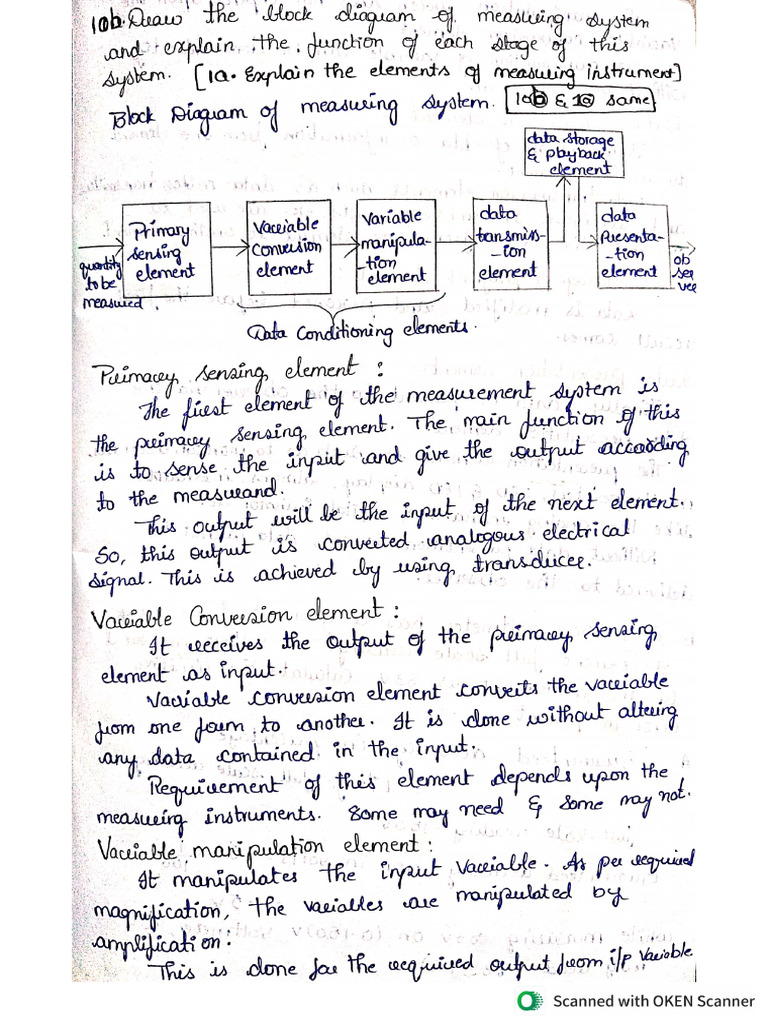 10b. Draw the block diagram of measuring system
and explain the function of each stage of this
system. [1a. Explain the elements of measuring instrument]
Block Diagram of measuring system. 10b & 1a same
data storage
& playback
element
Primary
sensing
element
Variable
conversion
element
Variable
manipula-
-tion
element
data
transmiss-
-ion
element
data
presenta-
-tion
element
quantity
to be
measured.
ob
ser
ver
Data Conditioning elements.
Primary sensing element :
The first element of the measurement system is
the primary sensing element. The main function of this
is to sense the input and give the output according
to the measurand.
This output will be the input of the next element.
So, this output is converted analogous electrical
signal. This is achieved by using transducer.
Variable Conversion element :
It receives the output of the primary sensing
element as input.
Variable conversion element converts the variable
from one form to another. It is done without altering
any data contained in the input.
Requirement of this element depends upon the
measuring instruments. Some may need & some may not.
Variable manipulation element :
It manipulates the input variable. As per required
magnification, the variables are manipulated by
amplification :
This is done for the required output from i/p variable
Scanned with OKEN Scanner